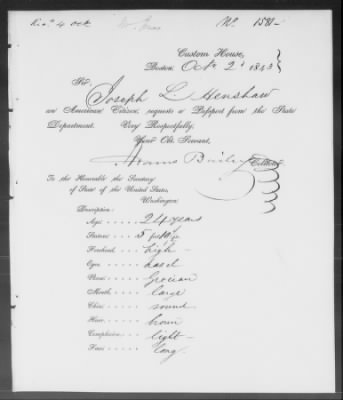 Rec'd 4 Oct. No. 1581-
Custom House,
Boston, Oct. 2d 1843
Sir,
Joseph L. Henshaw
an American Citizen, requests a Passport from the State
Department. Very Respectfully,
Your Obt. Servant,
Adams Bailey Collector
To the Honorable the Secretary
of State of the United States,
Washington
Description:
Age ..... 24 years
Stature ..... 5 feet 10 in
Forehead ..... high -
Eyes ..... hazel
Nose ..... Grecian
Mouth ..... large
Chin ..... round
Hair ..... brown
Complexion ..... light -
Face ..... long.